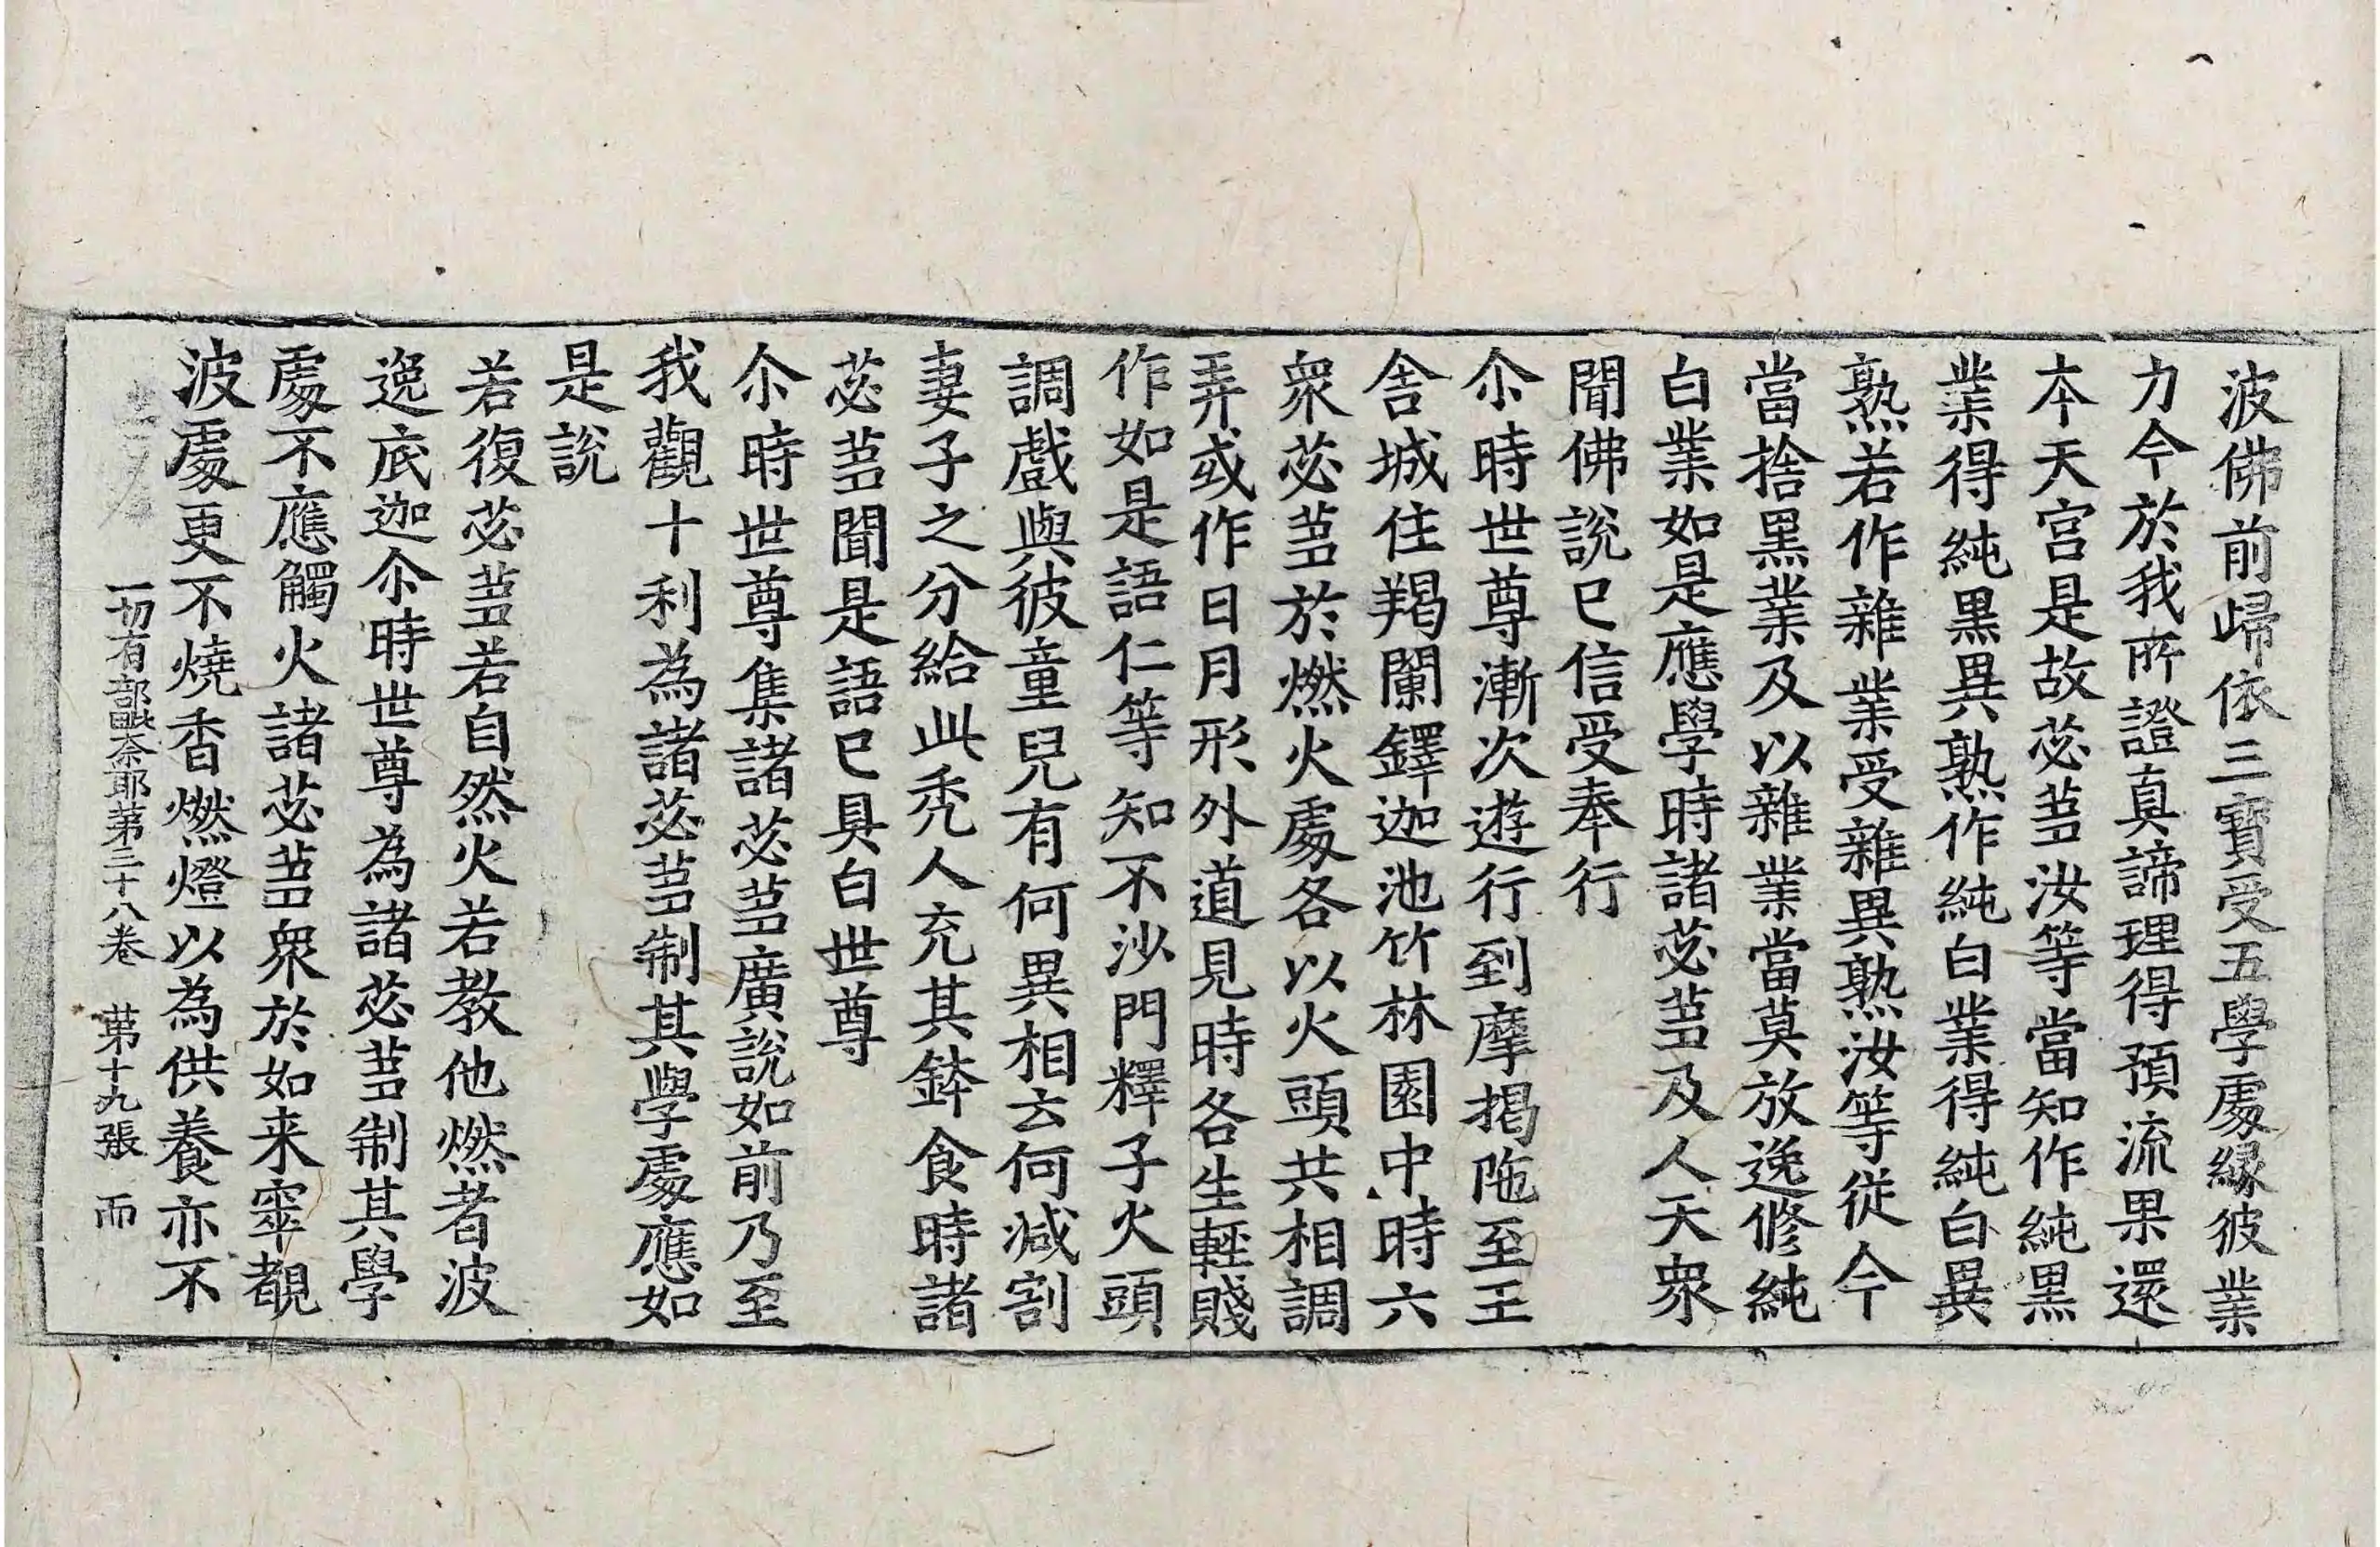 波佛前歸依三寶受五學處緣彼業
力今於我所證真諦理得預流果還
本天宮是故苾芻汝等當知作純黒
業得純黒異熟作純白業得純白異
熟若作雜業受雜異熟汝等從今
當捨黒業及以雜業當莫放逸修純
白業如是應學時諸苾芻及人天衆
聞佛說已信受奉行
尒時世尊漸次遊行到摩揭陁至王
舍城住羯闌鐸迦池竹林園中時六
衆苾芻於燃火處各以火頭共相調
弄或作日月形外道見時各生輕賤
作如是語仁等知不沙門釋子火頭
調戲與彼童兒有何異相云何減割
妻子之分給此禿人充其鉢食時諸
苾芻聞是語已具白世尊
尒時世尊集諸苾芻廣說如前乃至
我觀十利為諸苾芻制其學處應如
是說
若復苾芻若自然火若教他燃者波
逸底迦尒時世尊為諸苾芻制其學
處不應觸火諸苾芻衆於如来窣覩
波處更不燒香燃燈以為供養亦不
一切有部毗奈耶第三十八卷 第十九張 而